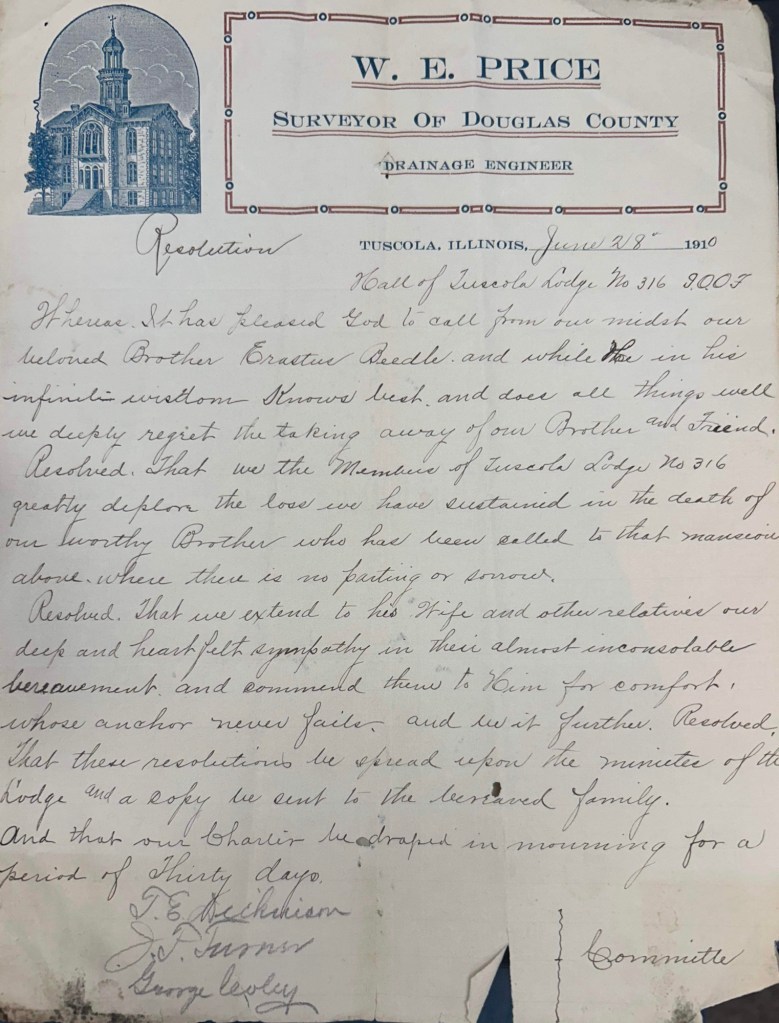 W. E. PRICE
SURVEYOR OF DOUGLAS COUNTY
DRAINAGE ENGINEER
Resolution
TUSCOLA, ILLINOIS, June 28" 1910
Hall of Tuscola Lodge No 316 I.O.O.F
Whereas. It has pleased God to call from our midst our
beloved Brother Erastus Beedle. and while He in his
infinite wisdom Knows best. and does all things well
we deeply regret the taking away of our Brother and Friend.
Resolved. That we the Members of Tuscola Lodge No 316
greatly deplore the loss we have sustained in the death of
our worthy Brother who has been called to that mansion
above. where there is no parting or sorrow.
Resolved. That we extend to his Wife and other relatives our
deep and heartfelt sympathy in their almost inconsolable
bereavement. and commend them to Him for comfort.
whose anchor never fails. and be it further. Resolved.
That these resolutions be spread upon the minutes of the
Lodge and a copy be sent to the bereaved family.
And that our Charter be draped in mourning for a
period of Thirty days.
T. E. Dickinson
J. P. Turner
George
Committe